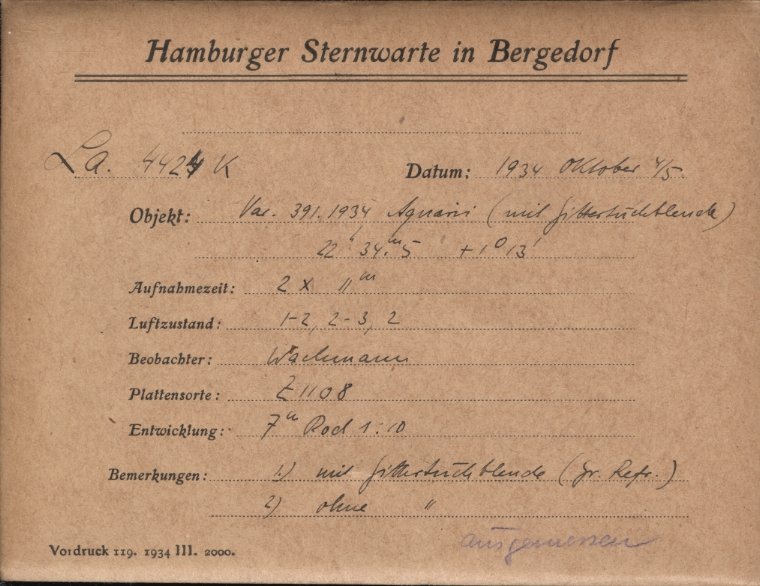 Hamburger Sternwarte in Bergedorf
La. 4424 K Datum: 1934 Oktober 4/5.
Objekt: Var. 391.1934 Aquarii (mit Gittertuchblende)
22ʰ 34.ᵐ5 +1° 13'
Aufnahmezeit: 2 x 11ᵐ
Luftzustand: 1-2, 2-3, 2
Beobachter: Wachmann
Plattensorte: Z 1108
Entwicklung: 7ᵐ Rod 1:10
Bemerkungen: 1) mit Gittertuchblende (Gr. Refr.)
2) ohne "
ausgemessen
Vordruck 119. 1934 III. 2000.